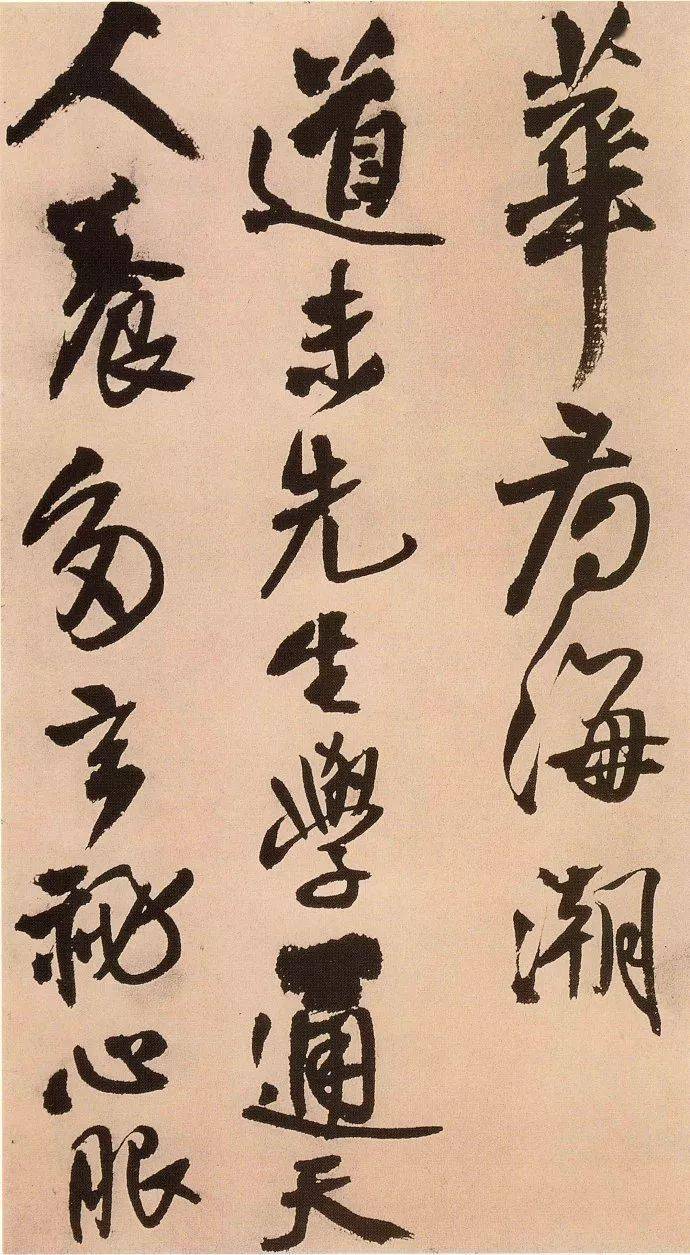 華為海潮
道未先生學通天
人養多玄秘心眼